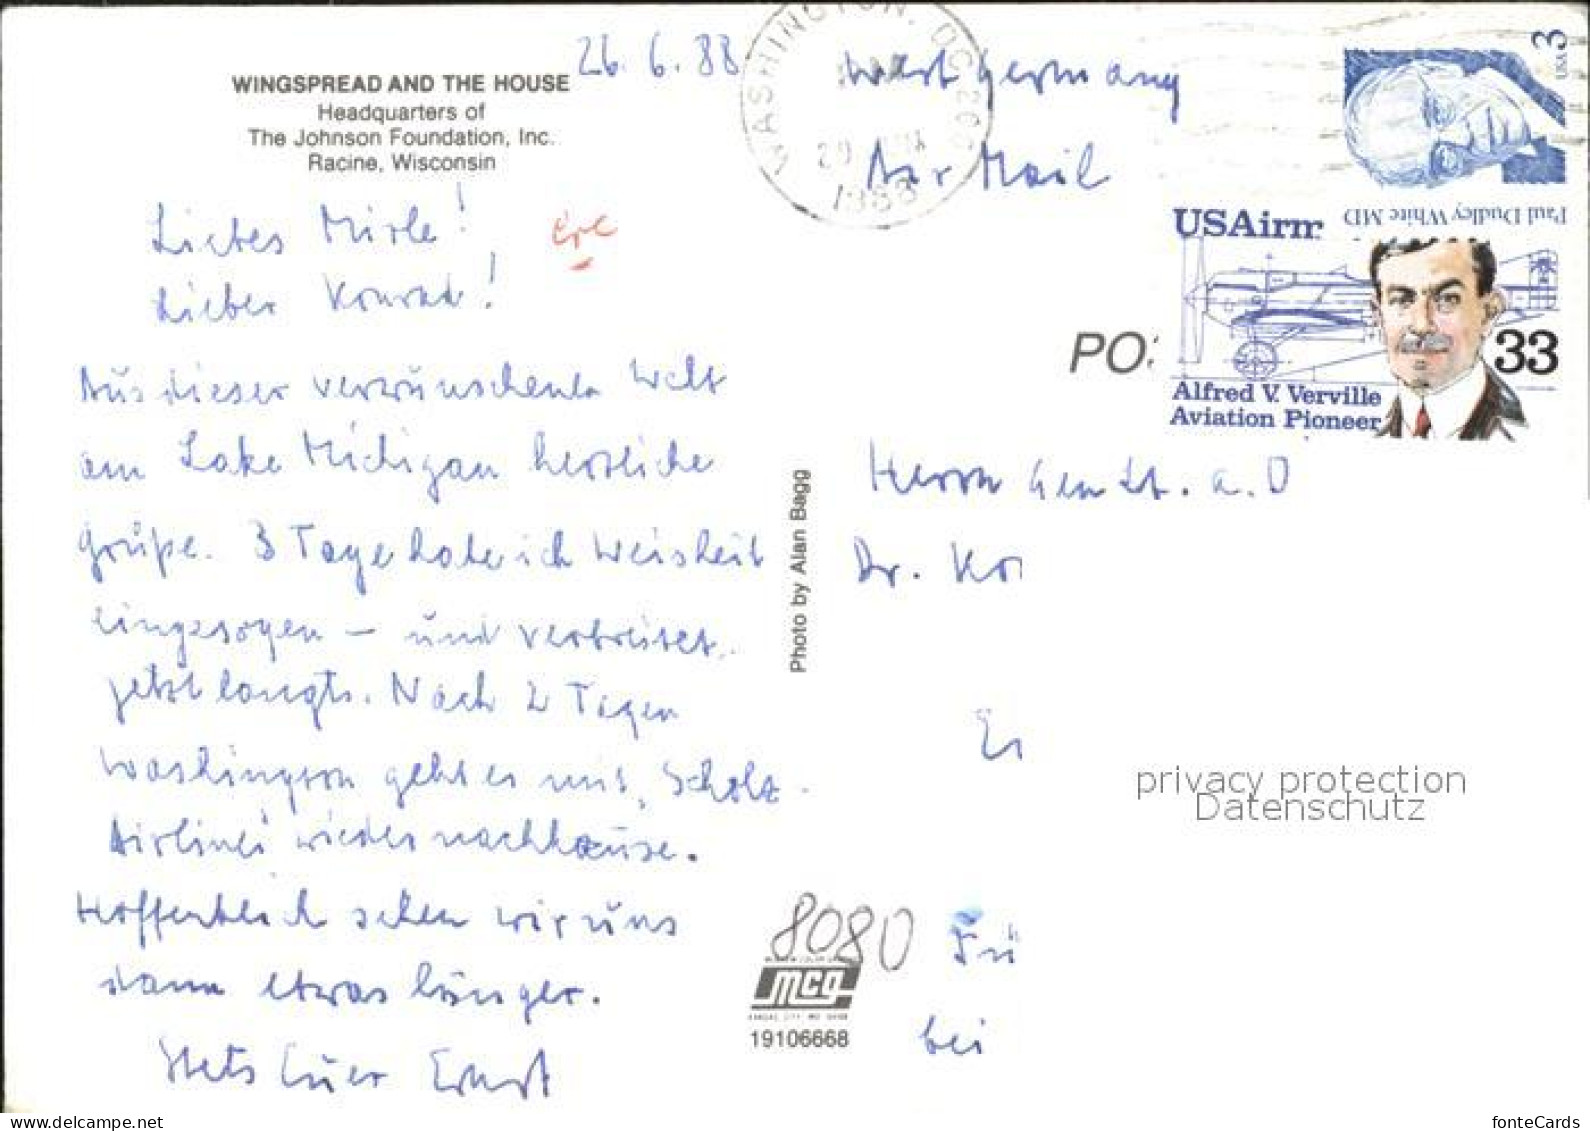 26.6.88
WINGSPREAD AND THE HOUSE
Headquarters of
The Johnson Foundation, Inc.
Racine, Wisconsin
Liebes Mirle!
Lieber Konrad!
Aus dieser verwunschenen Welt
am Lake Michigan herzliche
Grüße. 3 Tage habe ich Weisheit
eingesogen – und verbreitet,
jetzt langts. Nach 2 Tagen
Washington geht es mit "Scholz-
Airlines" wieder nachhause.
Hoffentlich sehen wir uns
dann etwas länger.
Stets Euer Ernst
Photo by Alan Bagg
WASHINGTON, DC 200
1988
West Germany
Air Mail
USA 3
Paul Dudley White MD
USAirm
33
Alfred V. Verville
Aviation Pioneer
PO
Herrn Gen Lt. a. D
Dr. Ko
privacy protection
Datenschutz
8080
Fü
bei
mcg
19106668
www.delcampe.net
fonteCards